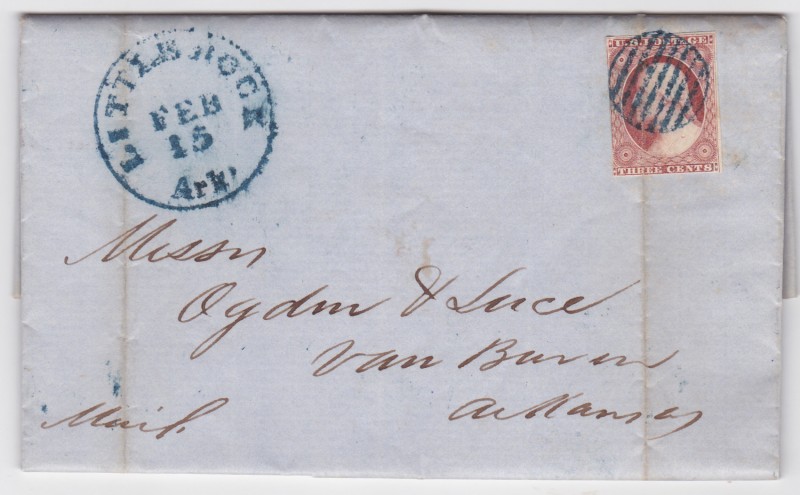 LITTLE ROCK
FEB
15
Ark'
U.S. POSTAGE
THREE CENTS
Messrs
Ogden & Luce
Van Buren
Arkansas
Mail.